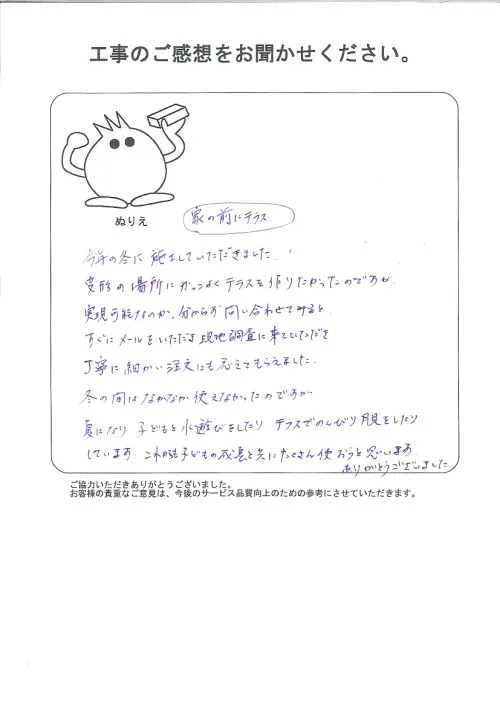 工事のご感想をお聞かせください。
ぬりえ
家の前にテラス.
今年の冬に施工していただきました.
変形の場所にかっこよくテラスを作りたかったのですが
実現可能なのか、分からず問い合わせてみると
すぐにメールをいただき現地調査に来ていただき
丁寧に細かい注文にも応えてもらえました.
冬の間はなかなか使えなかったのですが
夏になり子どもと水遊びをしたりテラスでのんびり月見をしたり
しています. これからも子どもの成長と共にたくさん使おうと思います.
ありがとうございました
ご協力いただきありがとうございました。
お客様の貴重なご意見は、今後のサービス品質向上のための参考にさせていただきます。